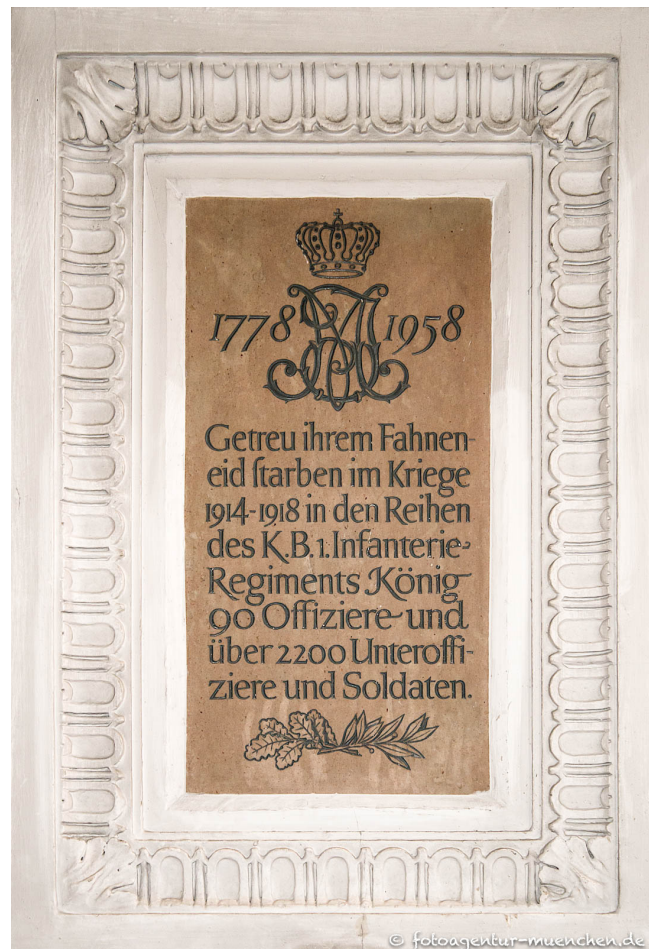 1778 1958
Getreu ihrem Fahnen-
eid ſtarben im Kriege
1914-1918 in den Reihen
des K.B. 1. Infanterie-
Regiments König
90 Offiziere und
über 2200 Unteroffi-
ziere und Soldaten.
© fotoagentur-muenchen.de